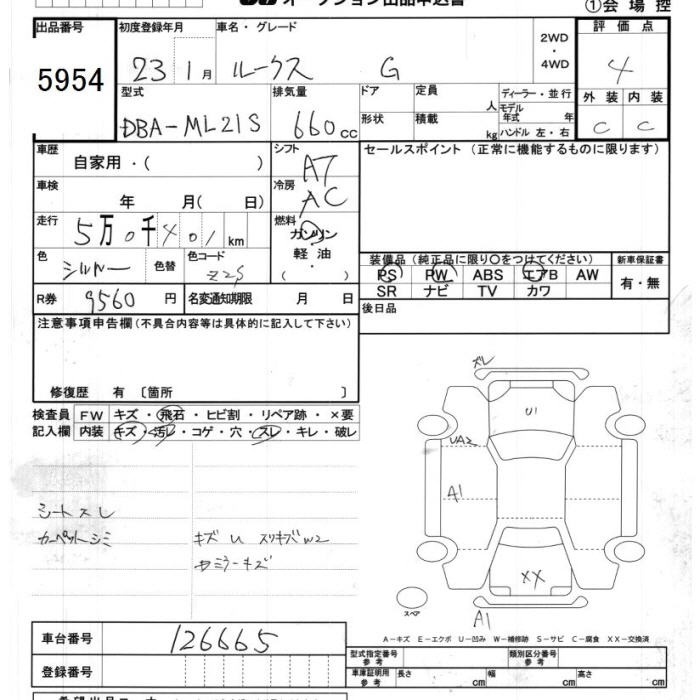 オークション出品申込書 ①会場控
出品番号 初度登録年月 車名・グレード 2WD・4WD 評価点
5954 23 1月 ルークス G 4
型式 排気量 ドア 定員 人 ディーラー・並行 外装 内装
DBA-ML21S 660cc 形状 積載 kg モデル年式 年 ハンドル 左・右 C C
車歴 自家用・( ) シフト AT セールスポイント (正常に機能するものに限ります)
車検 年 月( 日) 冷房 AC
走行 5万0千401km 燃料 ガソリン・軽油・( )
色 シルバー 色替 色コード Z2S
装備品 (純正品に限り○をつけてください) 新車保証書
PS PW ABS エアB AW 有・無
SR ナビ TV カワ
R券 9560円 名変通知期限 月 日 後日品
注意事項申告欄(不具合内容等は具体的に記入して下さい)
修復歴 有 〔箇所 〕
検査員 FW キズ・飛石・ヒビ割・リペア跡・×要
記入欄 内装 キズ・汚レ・コゲ・穴・スレ・キレ・破レ
ズレ
U1
UA2
A1
シートスレ
カーペットシミ キズ U スリキズW2
カミラーキズ
XX
スペア
A1
A-キズ E-エクボ U-凹み W-補修跡 S-サビ C-腐食 XX-交換済
車台番号 126665 型式指定番号 参考 類別区分番号 参考
登録番号 車庫証明用 参考 長さ cm 幅 cm 高さ cm